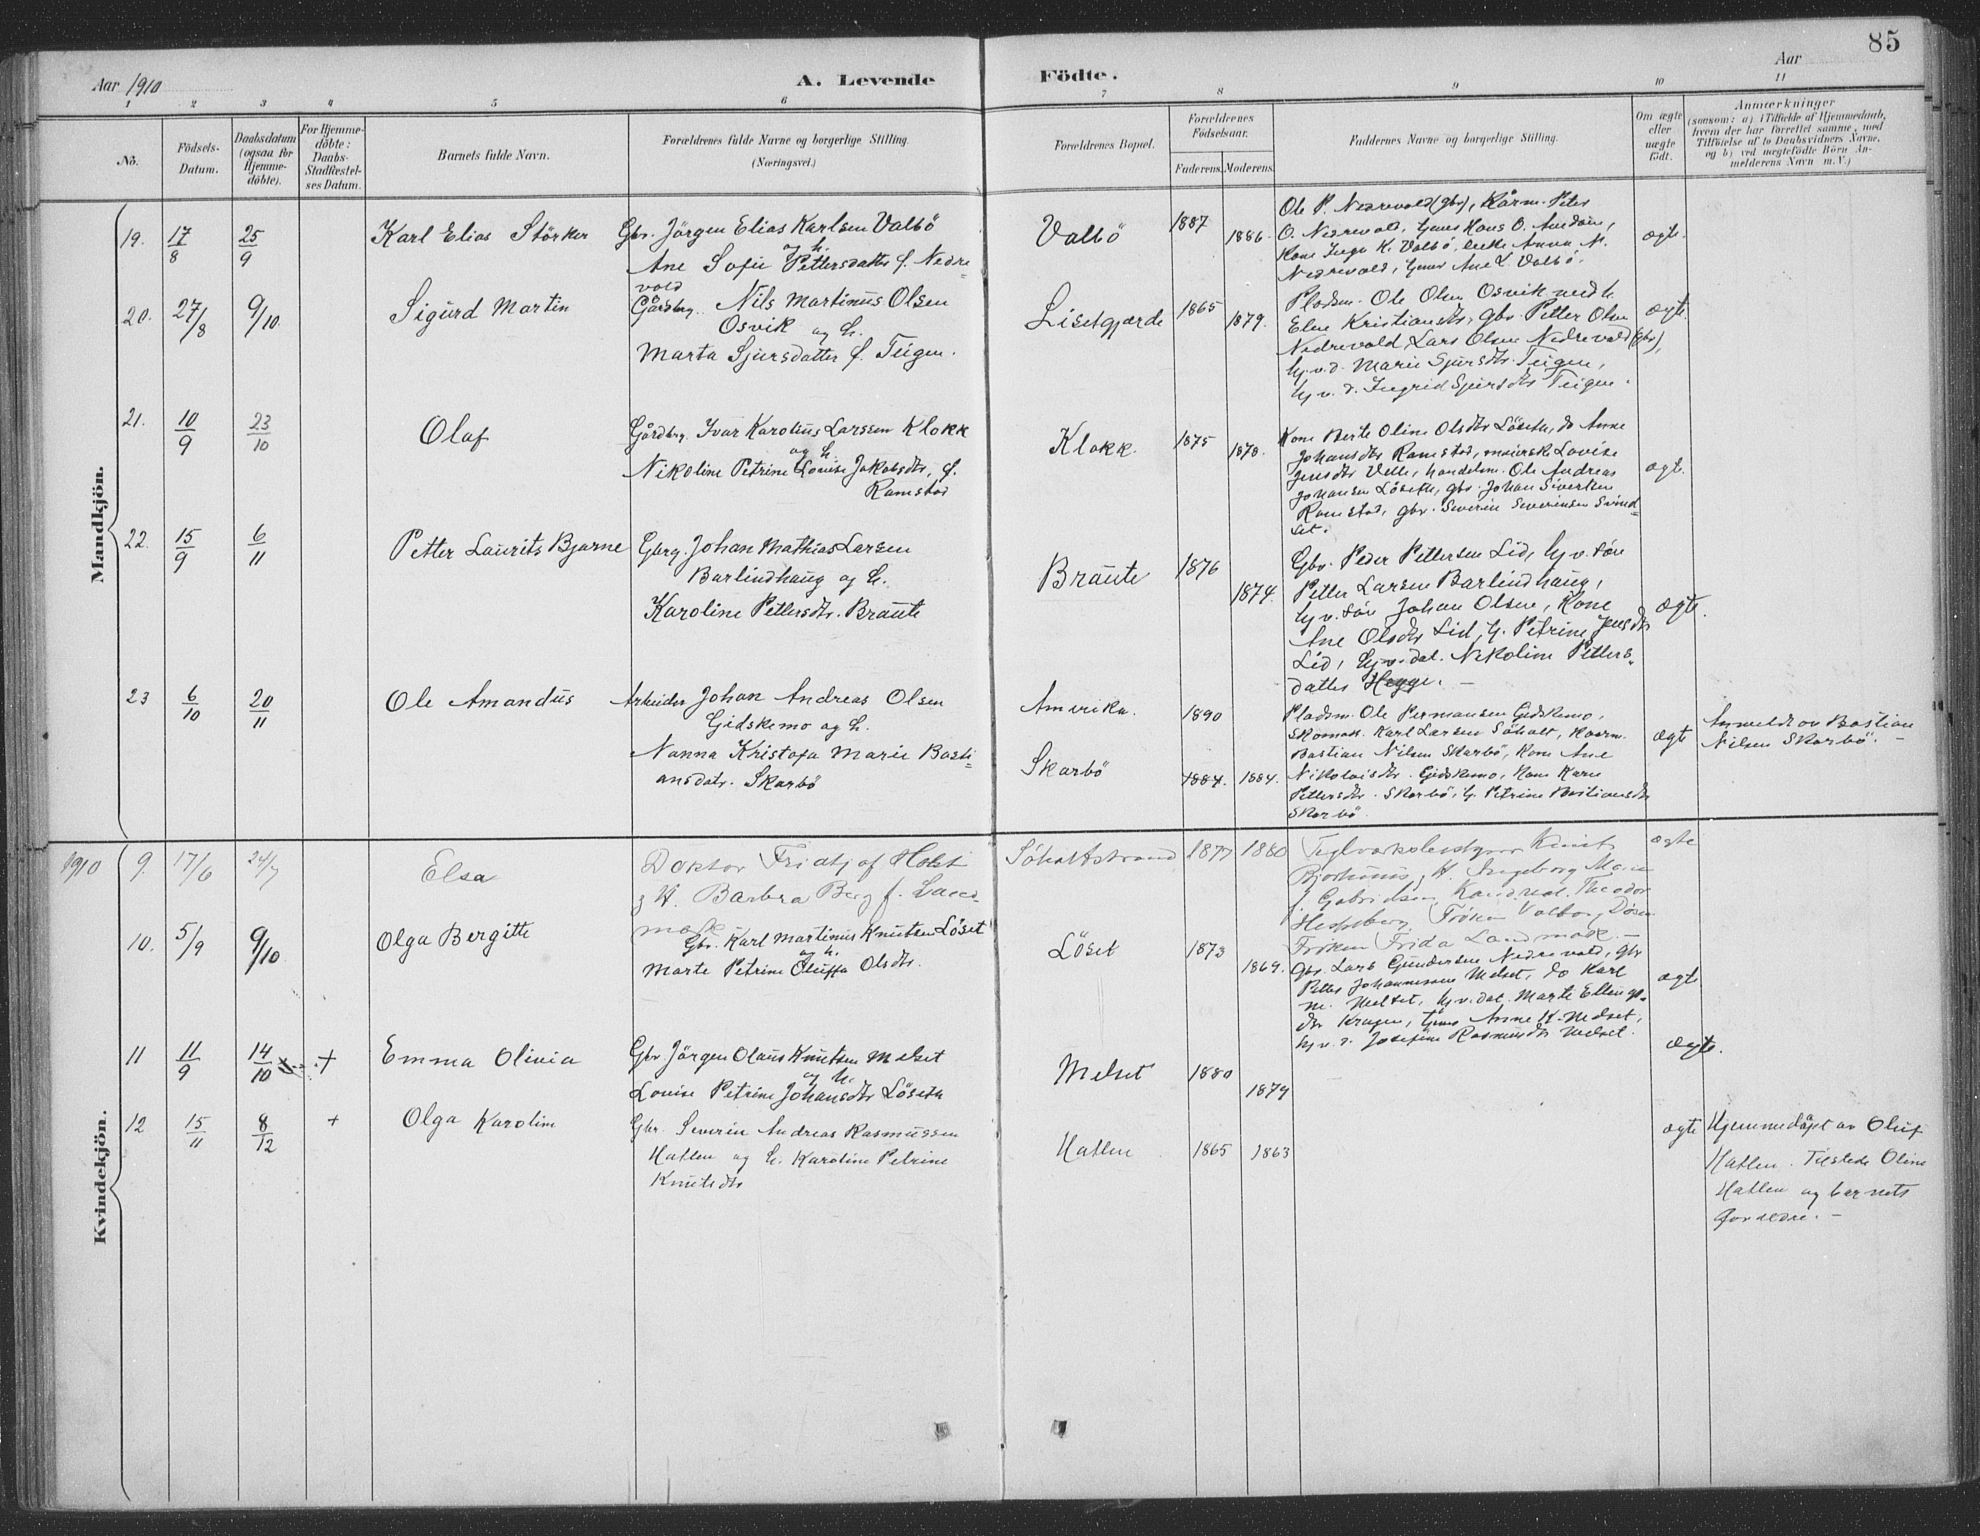 85
Aar 1910
A. Levende
Födte.
Aar
1 2 3 4 5 6 7 8 9 10 11
No.
Födsels-
Datum.
Daabsdatum
(ogsaa for
Hjemme-
döbte).
For Hjemme-
döbte:
Daabs-
Stadfæstel-
ses Datum.
Barnets fulde Navn.
Forældrenes fulde Navne og borgerlige Stilling.
(Næringsvei.)
Forældrenes Bopæl.
Forældrenes
Födselsaar.
Faderens. Moderens.
Faddernes Navne og borgerlige Stilling.
Om ægte
eller
uægte
födt.
Anmærkninger
(saasom: a) i Tilfælde af Hjemmedaab,
hvem der har forrettet samme, med
Tilföielse af to Daabsvidners Navne,
og b) ved uægtefödte Börn An-
melderens Navn m. V.)
Mandkjön.
19. 17/8 25/9 Karl Elias Störker
Gbr. Jörgen Elias Karlsen Valbö
h.
Ane Sofie Pettersdatter f. Nedre-
vold
Valbö 1887 1886.
Ole P. Nedrevold (gbr), Kårm. Peter
O. Nedrevold, Hans O.
Kone K. Valbö, Anna M.
Nedrevold, Ane L. Valbö.
ægte.
20. 27/8 9/10. Sigurd Martin
Gårdbrg. Nils Martinus Olsen
Osvik og h.
Marta Sjursdatter f. Teigen.
Lisetgjærde 1865 1879.
Pladsm. Ole Olsen Osvik med h.
Elen Kristiansdtr, gbr. Petter Olsen
Nedrevold, Lars Olsen Nedrevold (gbr),
hj.v.d. Marie Sjursdtr. Teigen,
hj.v.d. Ingrid Sjursdtr Teigen.
ægte.
21. 10/9 23/10 Olaf
Gårdbrg. Ivar Karolius Larssen Klokk
og h.
Nikoline Petrine Lovise Jakobsdtr, f.
Ramstad
Klokk. 1875 1878.
Kone Berte Oline Olsdtr Löseth, do Anne
Johansdtr Ramstad, meierske Lovise
Jensdtr Velle, handelsm. Ole Andreas
Johansen Löseth, gbr. Johan Sivertsen
Ramstad, gbr. Severin Severinsen Svind-
set.
ægt.
22. 15/9 6/11 Petter Laurits Bjarne
Gbrg. Johan Mathias Larsen
Barlindhaug og h.
Karoline Pettersdtr. Braute
Braute 1876 1874.
Gbr. Peder Pettersen Lid, hj.v. sön
Petter Larsen Barlindhaug,
hj.v. sön Johan Olsen, Kone
Ane Olsdtr Lid, h. Petrine Jensdtr
Lid, hj.v.dat. Nikoline Petters-
datter Hegge. —
ægte.
23 6/10 20/11 Ole Amandus
Arbeider Johan Andreas Olsen
Gidskemo og h.
Nanna Kristofa Marie Basti-
ansdatr. Skarbö
Amerika.
Skarbö
1890
1884. 1884.
Pladsm. Ole Gidskemo,
Skomak. Karl Larsen Söholt, Kaarm.
Bastian Nilsen Skarbö, Kone Ane
Nikolaisdtr. Gidskemo, Kone Karen
Pettersdtr. Skarbö, h. Petrine Bastiansdtr
Skarbö.
ægt
Anmeldt av Bastian
Nilsen Skarbö. —
Kvindekjön.
1910 9. 17/6 24/7 Elsa
Doktor Fridtjof Holst
Barbra Berg f. Land-
mark
Söholtstrand 1877 1880
Knut
Ingeborg Marie
f. Gabrielsen, Kand. real. Theodor
Hesselberg, Fröken Valborg
Fröken Frida Landmark. —
ægte
10. 5/9 9/10 Olga Bergitte
Gbr. Karl Martinus Knutsen Löset
og h.
Marte Petrine Oluffa Olsdtr.
Löset 1873 1869.
Gbr. Lars Gundersen Nedrevold, gbr
Petter Johannessen Melset, do Karl
M. Melset, hj.v.dat. Marte
Anne K. Melset,
hj.v.d. Josefine Rasmusdtr Melset.
ægt
11 11/9 14/10 + Emma Olivia
Gbr Jörgen Olaus Knutsen Melset
og h.
Lovise Petrine Johansdtr Löseth
Melset 1880 1879
ægte.
12 15/11 8/12 + Olga Karolin
Gbr. Severin Andreas Rasmussen
Hatlen og h. Karoline Petrine
Knutsdtr
Hatlen 1865 1863
ægte
Hjemmedöpt av Oluf
Hatlen. Tilstede Oline
Hatlen og barnets
foreldre. —